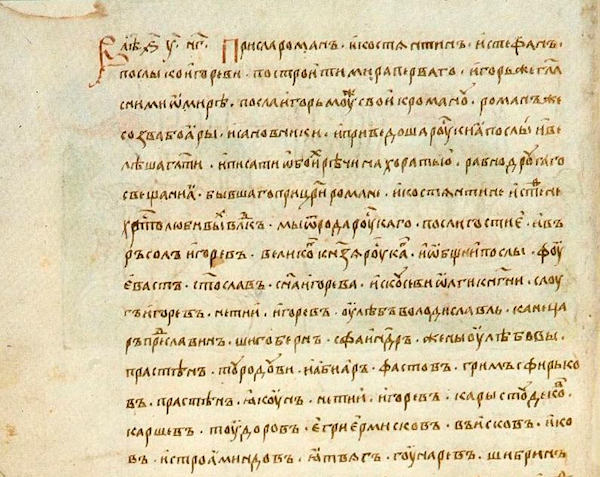 В лѣ҃ ҂ѕ у҃ н҃г. Присла романъ. и костѧнтинъ. и стефанъ.
послы ко игореви. построити мира перваго. игорь же гл҃а
с ними ѡ мирѣ. посла игорь моужѣ свои к роману. романъ же
созва боѧры. и сановники. и приведоша роускиꙗ послы и ве
лѣша гл҃ати. и писати ѡбоихъ рѣчи на харатью. равно дроугаго
свещаниꙗ. бывшаго при цр҃и романе. и костѧнтине и стефане
христолюбивыхъ влⷣкъ. мы ѿ рода роускаго. посли и гостие. ивъ
ръ солъ игоревъ. великого кнѧзѧ роускаго. и ѡбщии посли. воу
евастъ. ст҃ославль. сн҃а игорева. искоусеви ѡлги кнѧгини. слоу
гъ игоревъ. нетии. игоревъ. оулѣбъ володиславль. каница
ръ предславинъ. шигобернъ. сфаиндръ. жены оулѣбовы.
прастѣнъ. тоуродоуви. либиаръ. фастовъ. гримъ сфирько
въ. прастѣнъ. ꙗкоунъ. нетии. игоревъ. кары стоудековъ.
каршевъ. тоудоровъ. егриермисковъ. воисковъ. ико
въ. истроаминдовъ. ꙗтвѧгъ. гоунаревъ. шибринъ